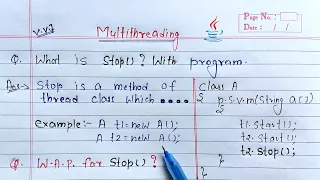 V.V.I
Multithreading
Java
Page No.:
Date: / /
Q. What is Stop()? With program.
Ans→ Stop is a method of
thread class which .....
Example:- A t1=new A();
A t2=new A();
Class A
{ p.s.v.m(String a[])
{
t1.start();
t2.start();
t2.stop();
}
}
Q. W.A.P. for Stop()?